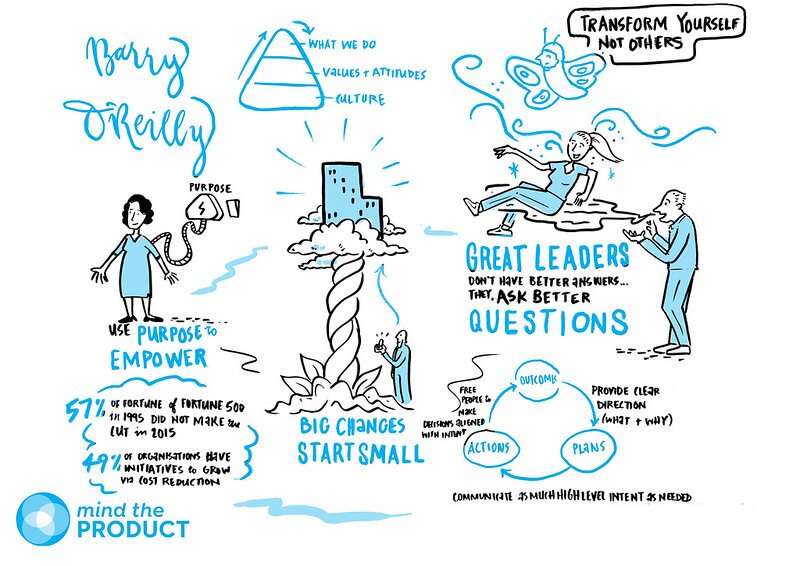 Barry
O'Reilly
WHAT WE DO
VALUES + ATTITUDES
CULTURE
TRANSFORM YOURSELF
NOT OTHERS
PURPOSE
USE PURPOSE to
EMPOWER
57% OF FORTUNE of FORTUNE 500
in 1995 DID NOT MAKE the
CUT in 2015
49% OF ORGANISATIONS HAVE
INITIATIVES to GROW
via COST REDUCTION
BIG CHANGES
START SMALL
GREAT LEADERS
DON'T HAVE BETTER ANSWERS...
THEY, ASK BETTER
QUESTIONS
FREE
PEOPLE to
MAKE
DECISIONS ALIGNED
WITH INTENT
OUTCOMES
PROVIDE CLEAR
DIRECTION
(WHAT + WHY)
ACTIONS
PLANS
COMMUNICATE AS MUCH HIGH LEVEL INTENT AS NEEDED
mind the
PRODUCT